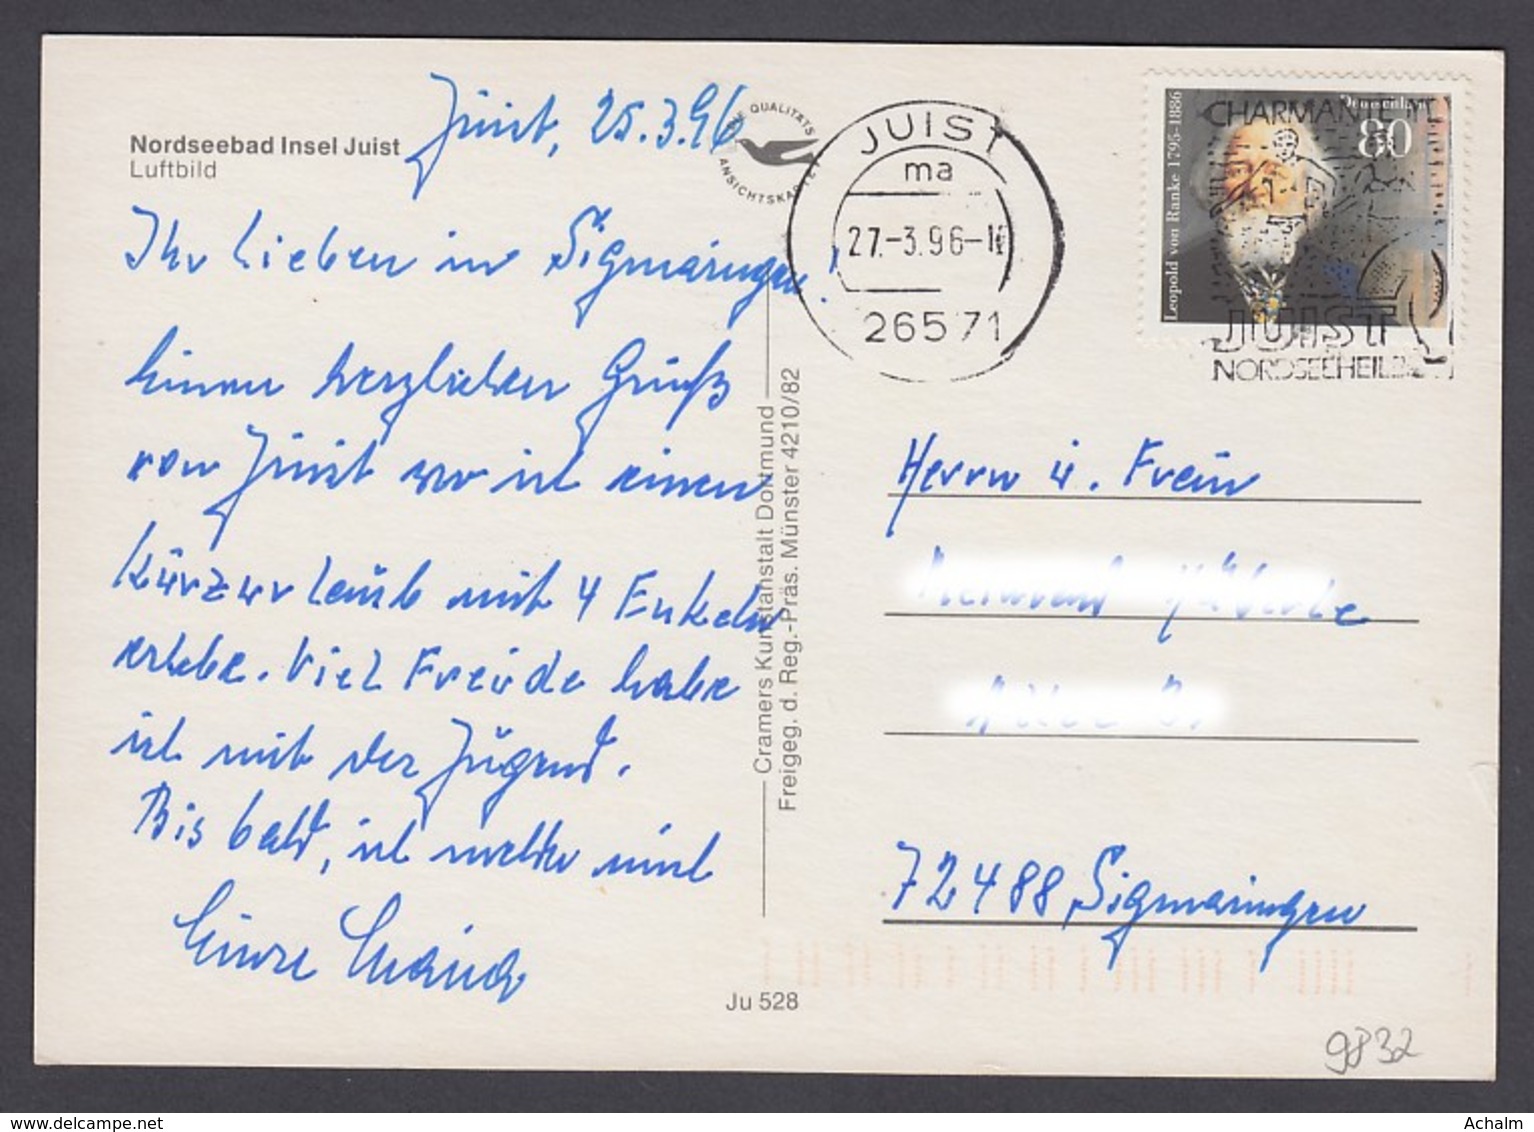 Nordseebad Insel Juist
Luftbild
Juist, 25.3.96
QUALITÄTS
ANSICHTSKARTE
Ihr Lieben in Sigmaringen!
Einen herzlichen Gruß
von Juist wo ich einen
Kurzurlaub mit 4 Enkeln
erlebe. Viel Freude habe
ich mit der Jugend.
Bis bald, ich melde mich
Eure
Cramers Kunstanstalt Dortmund
Freigeg. d. Reg.-Präs. Münster 4210/82
Ju 528
JUIST
ma
27.-3.96-1
26571
Leopold von Ranke 1795-1886
Deutschland
80
CHARMANTE
JUIST
NORDSEEHEILB
Herrn u. Frau
72488 Sigmaringen
9832
Achalm